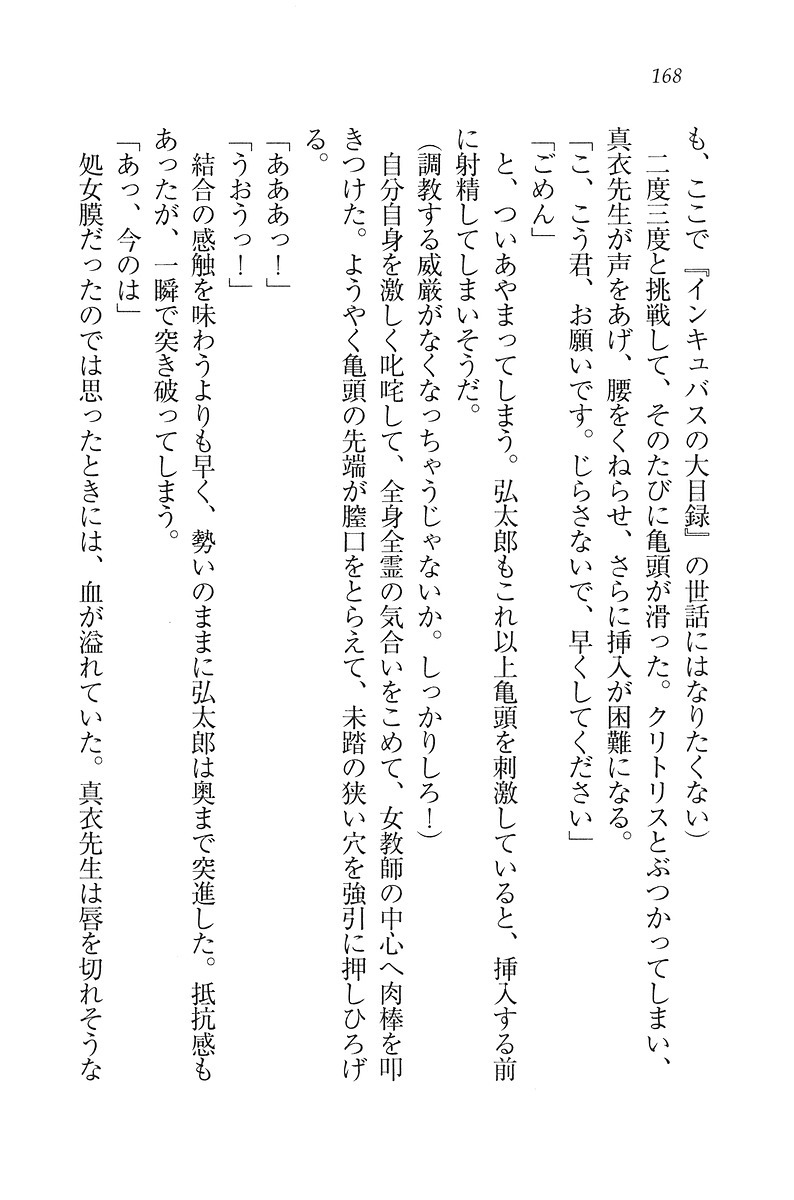 168
も、ここで『インキュバスの大目録』の世話にはなりたくない）
二度三度と挑戦して、そのたびに亀頭が滑った。クリトリスとぶつかってしまい、
真衣先生が声をあげ、腰をくねらせ、さらに挿入が困難になる。
「こ、こう君、お願いです。じらさないで、早くしてください」
「ごめん」
と、ついあやまってしまう。弘太郎もこれ以上亀頭を刺激していると、挿入する前
に射精してしまいそうだ。
（調教する威厳がなくなっちゃうじゃないか。しっかりしろ！）
自分自身を激しく叱咤して、全身全霊の気合いをこめて、女教師の中心へ肉棒を叩
きつけた。ようやく亀頭の先端が膣口をとらえて、未踏の狭い穴を強引に押しひろげ
る。
「あああっ！」
「うおうっ！」
結合の感触を味わうよりも早く、勢いのままに弘太郎は奥まで突進した。抵抗感も
あったが、一瞬で突き破ってしまう。
「あっ、今のは」
処女膜だったのでは思ったときには、血が溢れていた。真衣先生は唇を切れそうな